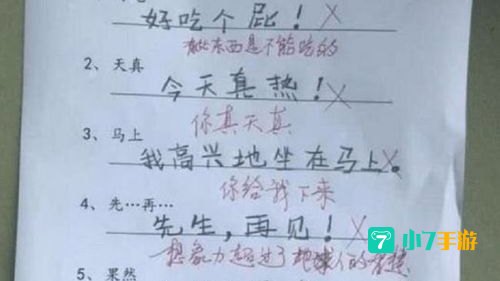 好吃个屁！
有些东西是不能吃的
2、天真
今天真热！
你真天真
3、马上
我高兴地坐在马上。
你给我下来
4、先…再…
先生，再见！
想象力超过了地球人的
5、果然
7 小7手游